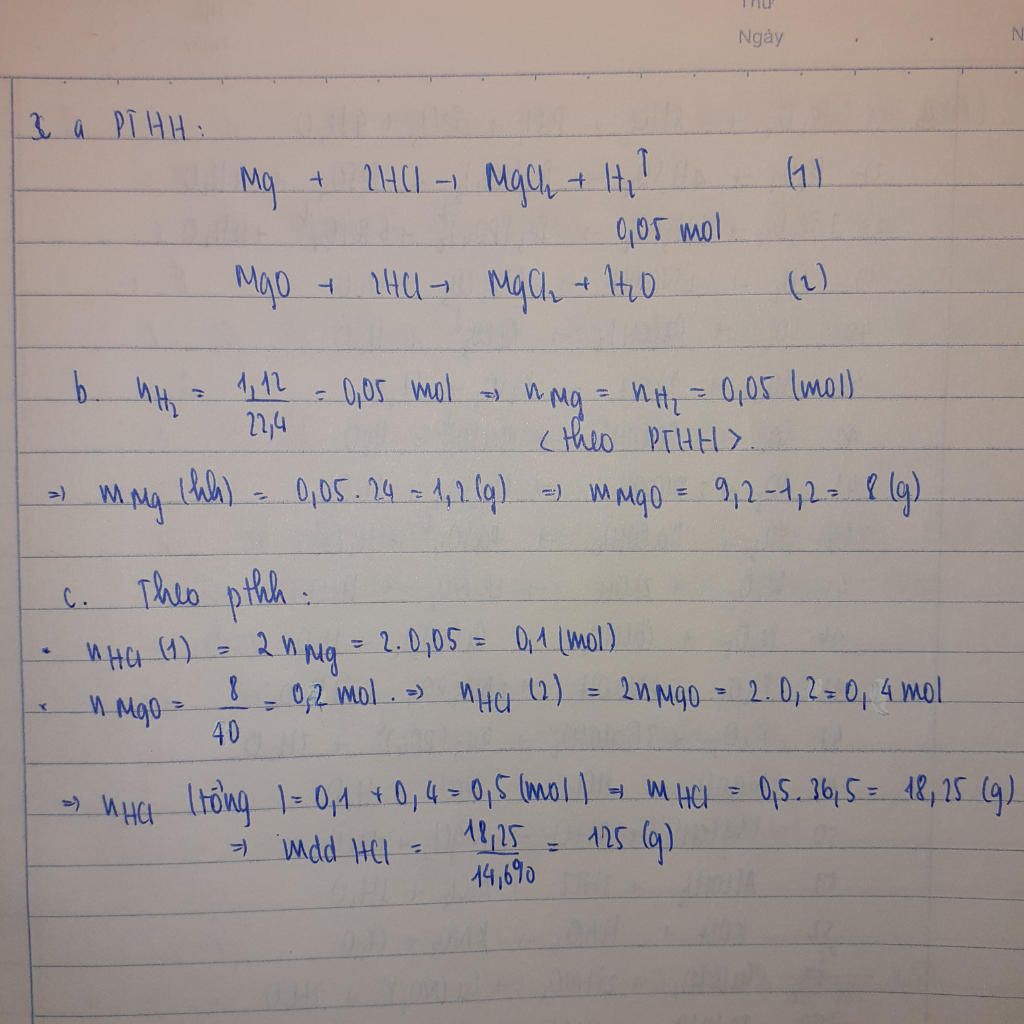 Thứ
Ngày . .
N
3 a PTHH:
Mg + 2HCl → MgCl₂ + H₂↑ (1)
0,05 mol
MgO + 2HCl → MgCl₂ + H₂O (2)
b. nH₂ = 1,12/22,4 = 0,05 mol ⇒ nMg = nH₂ = 0,05 (mol)
<theo PTHH>.
⇒ mMg (hh) = 0,05.24 = 1,2 (g) ⇒ mMgO = 9,2 - 1,2 = 8 (g)
c. Theo pthh:
• nHCl (1) = 2nMg = 2.0,05 = 0,1 (mol)
• nMgO = 8/40 = 0,2 mol. ⇒ nHCl (2) = 2nMgO = 2.0,2 = 0,4 mol
⇒ nHCl (tổng) = 0,1 + 0,4 = 0,5 (mol) ⇒ mHCl = 0,5.36,5 = 18,25 (g)
⇒ mdd HCl = 18,25/14,6% = 125 (g)